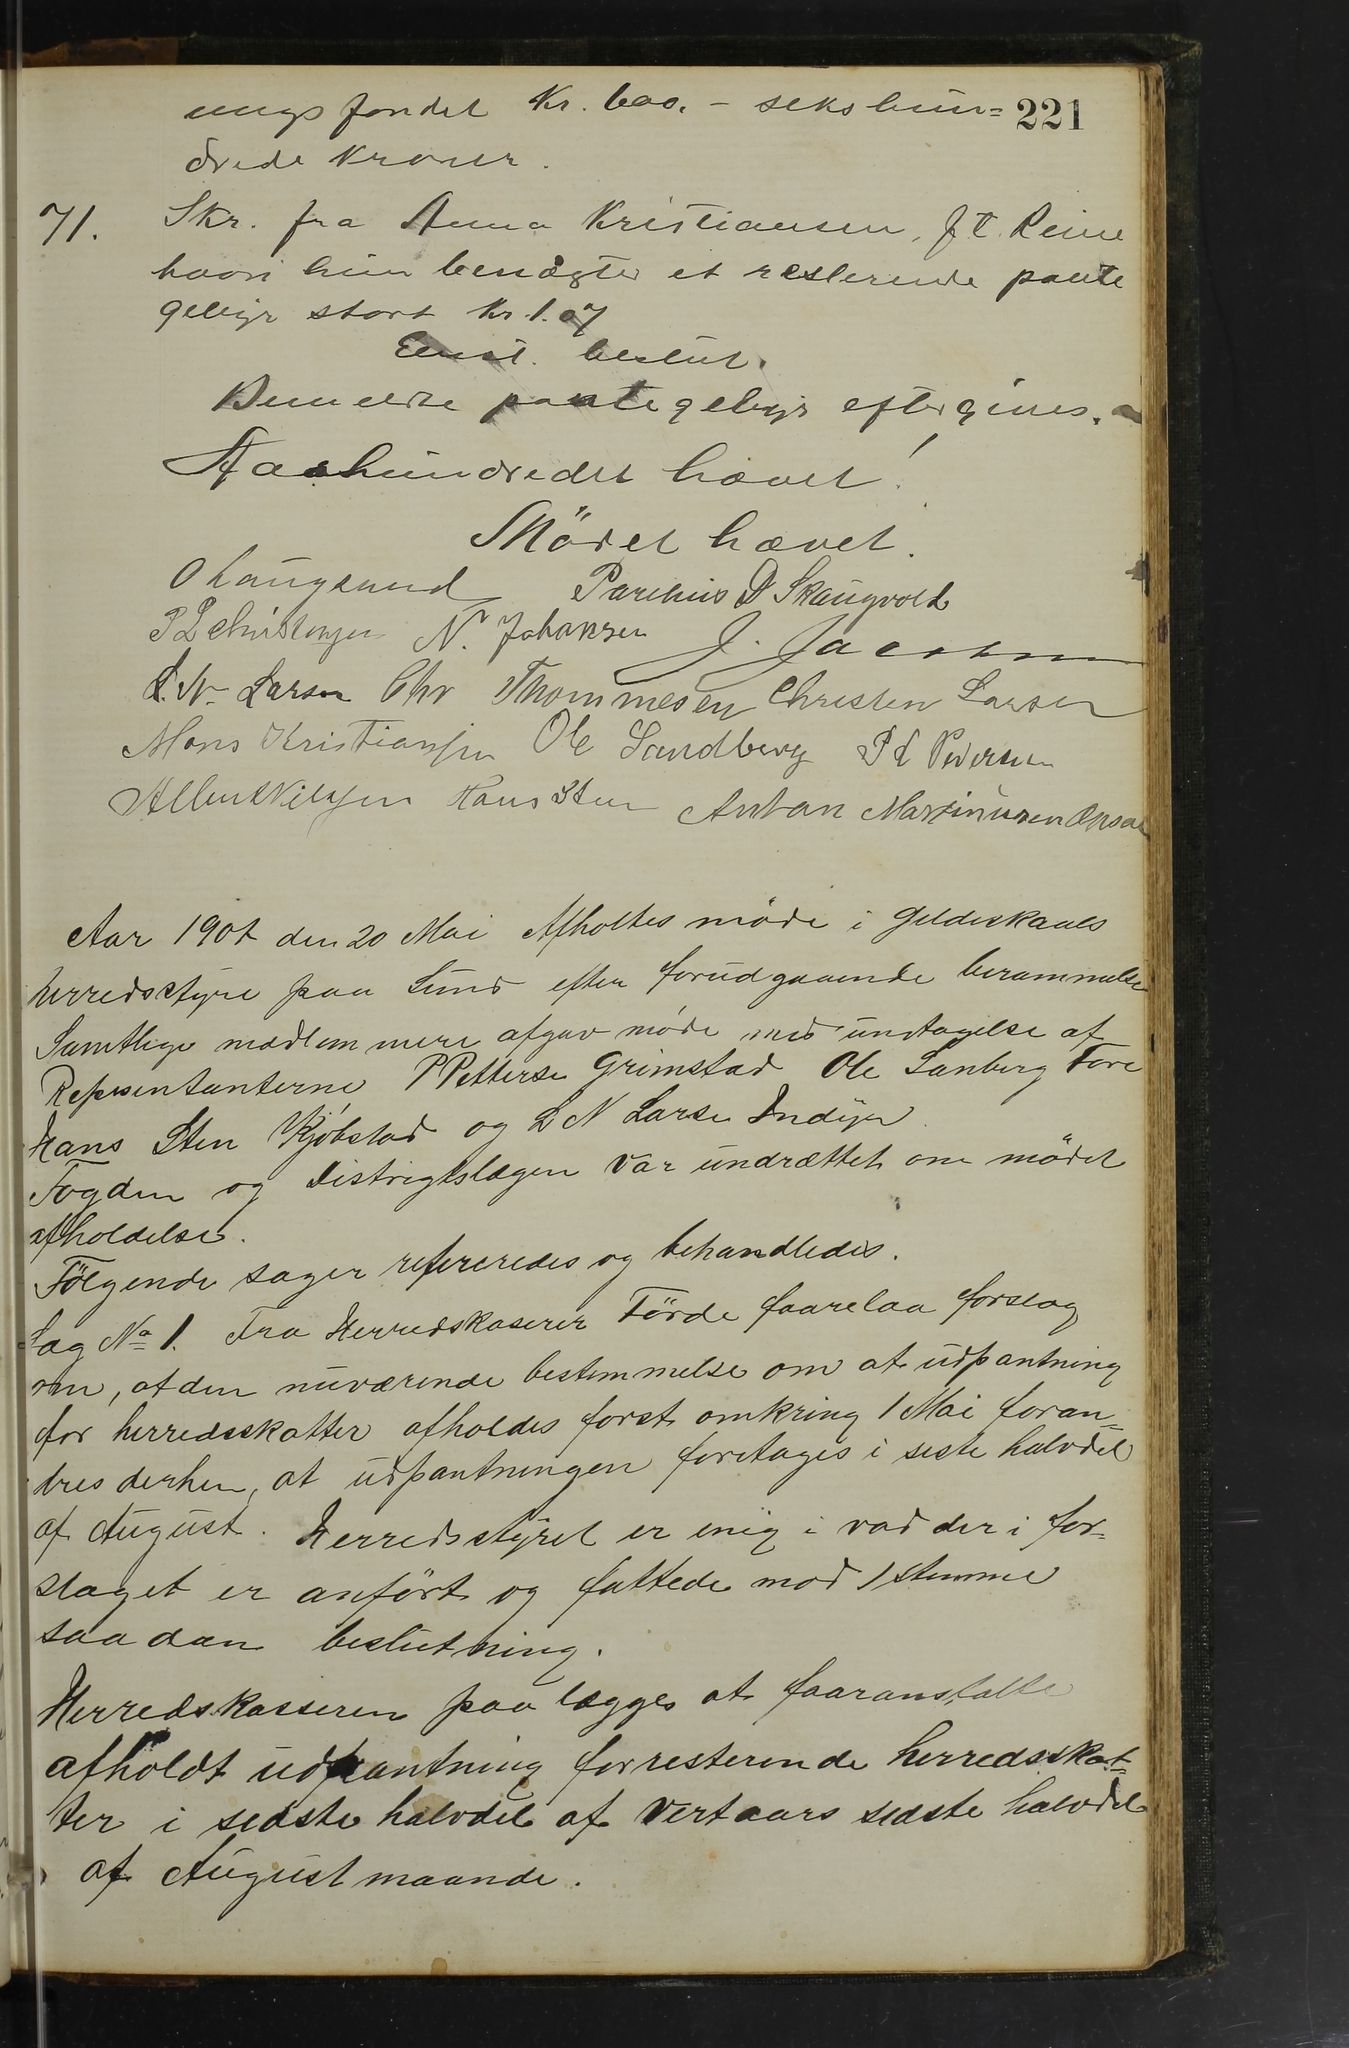 ungsfondet Kr. 600. - seks hun= 221
drede kroner.
71. Skr. fra Anna Kristiansen, f. t. Reine
hvori hun benægter et resterende pante
gebyr stort Kr. 1.07
Enst. beslut.
Bemeldte pantegebyr eftergives.
Aarhundredet hævet!
Mödet hævet.
O Laugsand Parelius D Skaugvold
P L Christensen N. Johansen J. Jacobsen
L. N. Larsen Chr Thommesen Christen Larsen
Mons Kristiansen Ole Sandberg P L Pedersen
Albert Nilsen Hans Sten Anton Martinusen
Aar 1901 den 20 Mai Afholtes möde i Gildeskaals
herredsstyre paa Lund efter forudgaaende berammelse
Samtlige medlemmere afgav möde med undtagelse af
Repsentanterne P Petterse Grimstad Ole Sanberg Fore
Hans Sten Kjöbstad og L N Larse Indyr
Fogden og distrigtslægen var undrættet om mödet
afholdelse.
Fölgende sager refereredes og behandledes.
Sag No 1. Fra Herredskaserer Förde faarelaa forslag
om, at den nuværende bestemmelse om at udpantning
for herredsskatter afholdes först omkring 1 Mai foran-
dres derhen, at udpantningen foretages i seste halvdel
af August. Herredsstyret er enig i vad der i for-
slaget er anfört og fattede mod 1 stemme
saadan beslutning.
Herredskasseren paalægges at faaranstalte
afholdt udpantning for resterende herredsskat-
ter i sidste halvdel af vert aars sidste halvdel
af August maande.